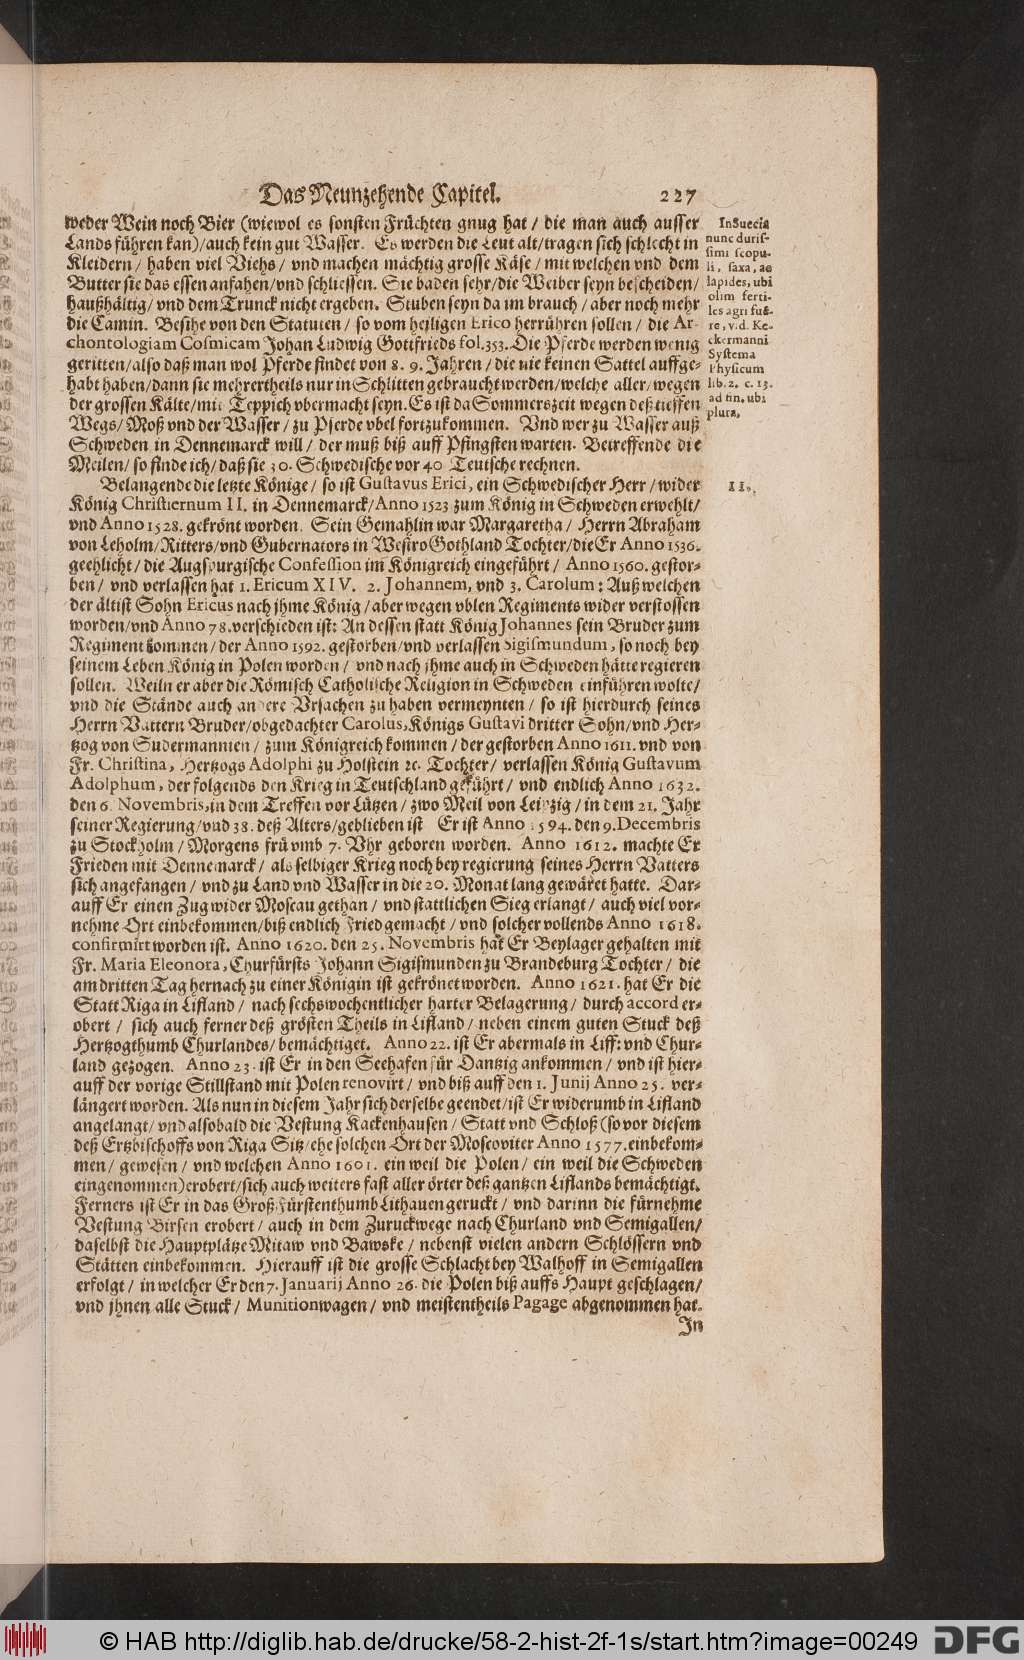 Das Neunzehende Capitel. 227
weder Wein noch Bier (wiewol es sonsten Früchten gnug hat / die man auch ausser
Lands führen kan)/auch kein gut Wasser. Es werden die Leut alt/tragen sich schlecht in
Kleidern / haben viel Viehs / vnd machen mächtig grosse Käse / mit welchen vnd dem
Butter sie das essen anfahen/vnd schliessen. Sie baden sehr/die Weiber seyn bescheiden/
haußhältig/ vnd dem Trunck nicht ergeben. Stuben seyn da im brauch / aber noch mehr
die Camin. Besihe von den Statuten / so vom heiligen Erico herrühren sollen / die Ar-
chontologiam Cosmicam Johan Ludwig Gottfrieds fol.353. Die Pferde werden wenig
geritten/also daß man wol Pferde findet von 8. 9. Jahren / die nie keinen Sattel auffge-
habt haben/dann sie mehrertheils nur in Schlitten gebraucht werden/welche aller/wegen
der grossen Kälte/mit Teppich vbermacht seyn. Es ist da Sommerszeit wegen deß tieffen
Wegs/ Moß vnd der Wasser / zu Pferde vbel fortzukommen. Vnd wer zu Wasser auß
Schweden in Dennemarck will / der muß biß auff Pfingsten warten. Betreffende die
Meilen/ so finde ich/ daß sie 30. Schwedische vor 40 Teutsche rechnen.
In Suecia
nunc duris-
simi scopu-
li, saxa, ac
lapides, ubi
olim ferti-
les agri fuê-
re, v.d. Ke-
ckermanni
Systema
Physicum
lib. 2. c. 13.
ad fin. ubi
plura.
Belangende die letzte Könige / so ist Gustavus Erici, ein Schwedischer Herr / wider
II.
König Christiernum II. in Dennemarck/Anno 1523 zum König in Schweden erwehlt/
vnd Anno 1528. gekrönt worden. Sein Gemahlin war Margaretha / Herrn Abraham
von Leholm/Ritters/vnd Gubernators in WestroGothland Tochter/die Er Anno 1536.
geehlicht / die Augspurgische Confession im Königreich eingeführt / Anno 1560. gestor-
ben / vnd verlassen hat 1. Ericum XIV. 2. Johannem, vnd 3. Carolum: Auß welchen
der ältist Sohn Ericus nach jhme König / aber wegen vblen Regiments wider verstossen
worden/vnd Anno 78. verschieden ist: An dessen statt König Johannes sein Bruder zum
Regiment kommen / der Anno 1592. gestorben/vnd verlassen Sigismundum, so noch bey
seinem Leben König in Polen worden / vnd nach jhme auch in Schweden hätte regieren
sollen. Weiln er aber die Römisch Catholische Religion in Schweden einführen wolte/
vnd die Stände auch andere Vrsachen zu haben vermeynten / so ist hierdurch seines
Herrn Vattern Bruder/obgedachter Carolus, Königs Gustavi dritter Sohn/vnd Her-
tzog von Sudermannien / zum Königreich kommen / der gestorben Anno 1611. vnd von
Fr. Christina, Hertzogs Adolphi zu Holstein ꝛc. Tochter / verlassen König Gustavum
Adolphum, der folgends den Krieg in Teutschland geführt / vnd endlich Anno 1632.
den 6. Novembris, in dem Treffen vor Lützen / zwo Meil von Leipzig / in dem 21. Jahr
seiner Regierung/vnd 38. deß Alters/geblieben ist Er ist Anno 1594. den 9. Decembris
zu Stockholm / Morgens frü vmb 7. Vhr geboren worden. Anno 1612. machte Er
Frieden mit Dennemarck / als selbiger Krieg noch bey regierung seines Herrn Vatters
sich angefangen / vnd zu Land vnd Wasser in die 20. Monat lang gewäret hatte. Dar-
auff Er einen Zug wider Moscau gethan / vnd stattlichen Sieg erlangt / auch viel vor-
nehme Ort einbekommen/biß endlich Fried gemacht / vnd solcher vollends Anno 1618.
confirmirt worden ist. Anno 1620. den 25. Novembris hat Er Beylager gehalten mit
Fr. Maria Eleonora, Churfürsts Johann Sigismunden zu Brandeburg Tochter / die
am dritten Tag hernach zu einer Königin ist gekrönet worden. Anno 1621. hat Er die
Statt Riga in Lifland / nach sechswochentlicher harter Belagerung / durch accord er-
obert / sich auch ferner deß grösten Theils in Lifland / neben einem guten Stuck deß
Hertzogthumb Churlandes/ bemächtiget. Anno 22. ist Er abermals in Liff: vnd Chur-
land gezogen. Anno 23. ist Er in den Seehafen für Dantzig ankommen / vnd ist hier-
auff der vorige Stillstand mit Polen renovirt / vnd biß auff den 1. Junij Anno 25. ver-
längert worden. Als nun in diesem Jahr sich derselbe geendet/ist Er widerumb in Lifland
angelangt/ vnd alsobald die Vestung Kackenhausen / Statt vnd Schloß (so vor diesem
deß Ertzbischoffs von Riga Sitz/ehe solchen Ort der Moscoviter Anno 1577. einbekom-
men / gewesen / vnd welchen Anno 1601. ein weil die Polen / ein weil die Schweden
eingenommen) erobert/sich auch weiters fast aller örter deß gantzen Liflands bemächtigt.
Ferners ist Er in das Groß-Fürstenthumb Lithauen geruckt / vnd darinn die fürnehme
Vestung Birsen erobert / auch in dem Zuruckwege nach Churland vnd Semigallen/
daselbst die Hauptplätze Mitaw vnd Bawske / nebenst vielen andern Schlössern vnd
Stätten einbekommen. Hierauff ist die grosse Schlacht bey Walhoff in Semigallen
erfolgt / in welcher Er den 7. Januarij Anno 26. die Polen biß auffs Haupt geschlagen/
vnd jhnen alle Stuck / Munitionwagen / vnd meistentheils Pagage abgenommen hat.
In
© HAB http://diglib.hab.de/drucke/58-2-hist-2f-1s/start.htm?image=00249 DFG